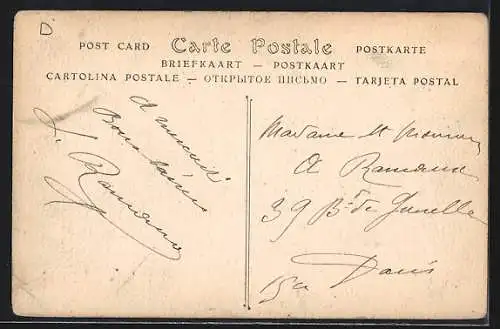 D
POST CARD Carte Postale POSTKARTE
BRIEFKAART — POSTKAART
CARTOLINA POSTALE — ОТКРЫТОЕ ПИСЬМО — TARJETA POSTAL
A
Bons baisers
J. Rameau
Madame et Monsieur
A Rameau
39 Bd de Grenelle
Paris
15e